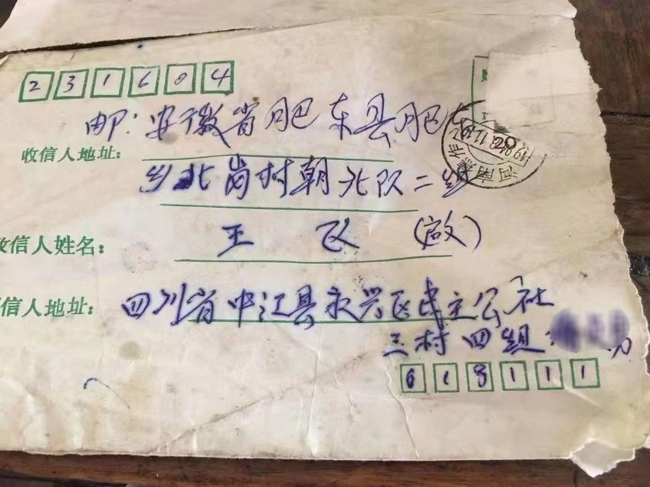 231604
邮:安徽省肥东县肥东
收信人地址:
乡北岗村朝北队二组
收信人姓名:
王飞(启)
信人地址:
四川省中江县永兴区民主公社
三村四组
618111
河南焦作